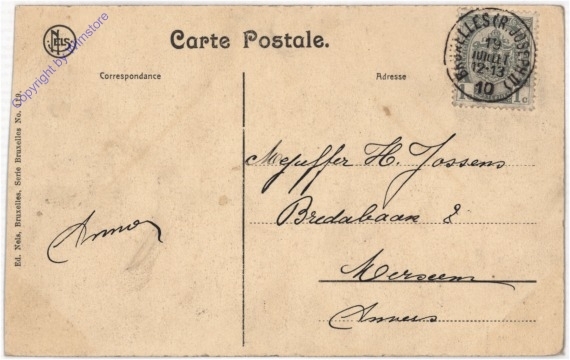 NELS
Copyright by filmstore
Carte Postale.
Correspondance
Adresse
BRUXELLES (R. JOSEPH II)
19
JUILLET
12-13
10
1 c
Mejuffer H. Jossens
Bredabaan 8
Merxem
Anvers
Anna
Ed. Nels, Bruxelles, Serie Bruxelles No. 119.